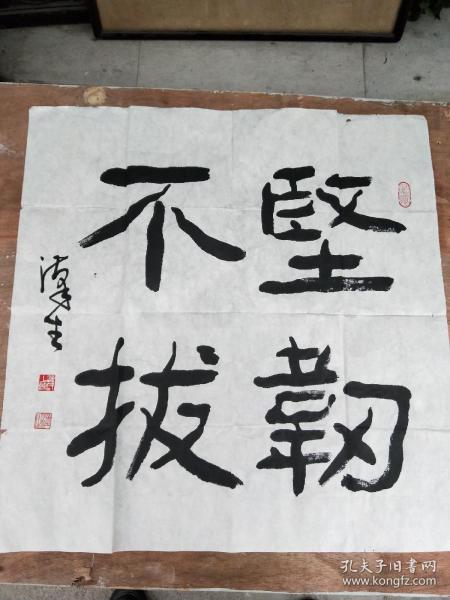 堅韌
不拔
孔夫子旧书网
www.kongfz.com